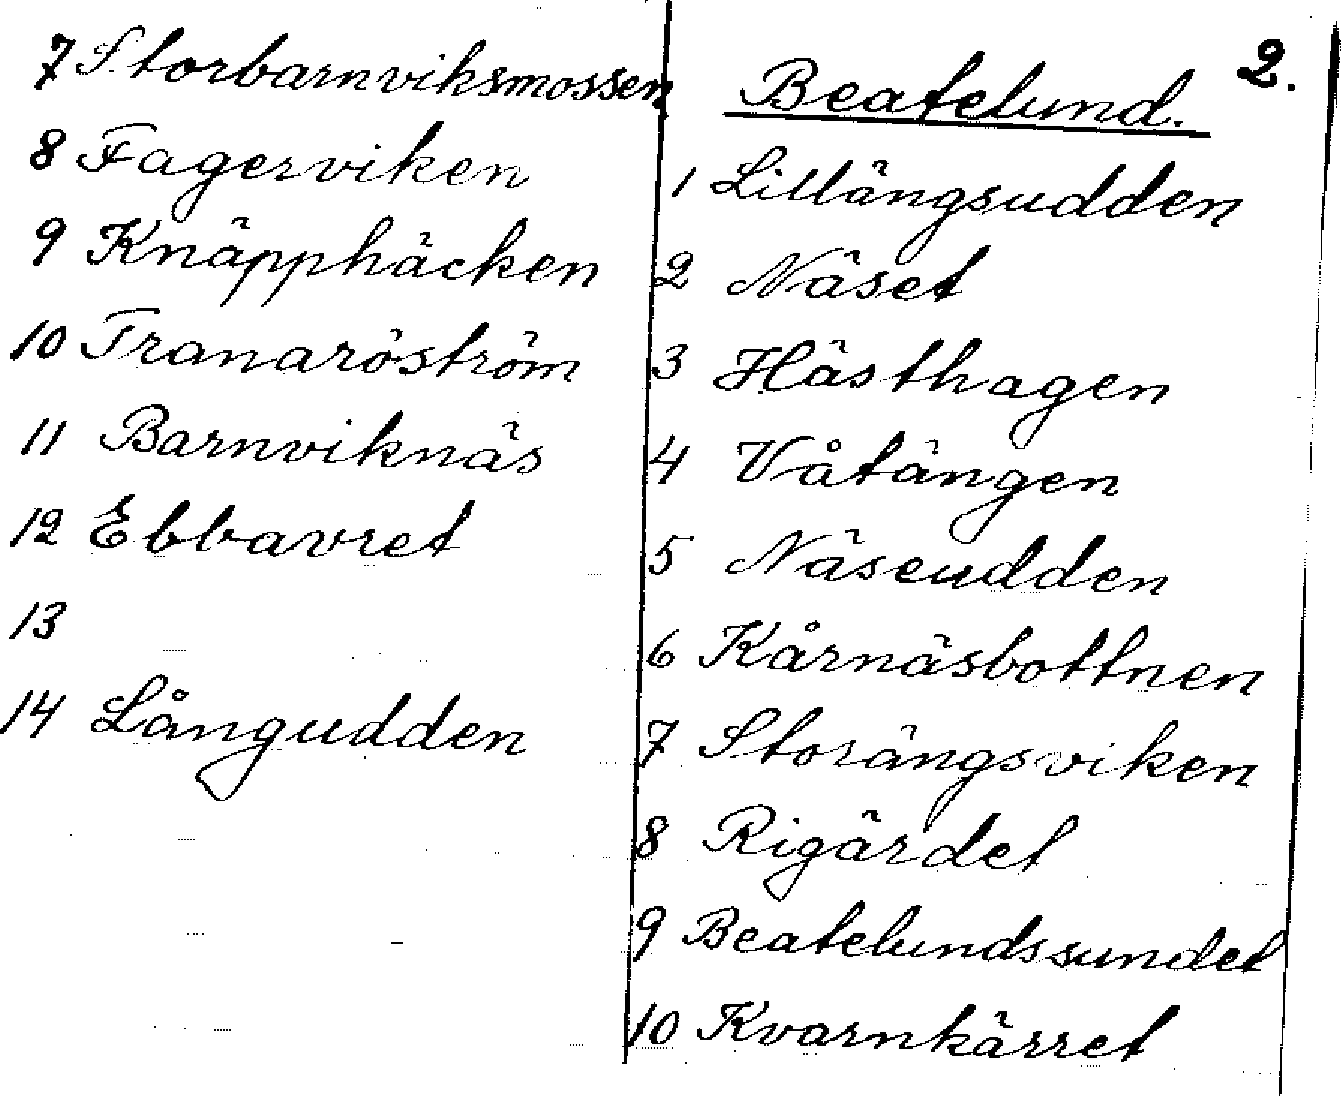 7 Storbarnviksmossen
8 Fagerviken
9 Knäpphäcken
10 Tranaröström
11 Barnviknäs
12 Ebbavret
13
14 Långudden
2.
Beatelund.
1 Lillängsudden
2 Näset
3 Hästhagen
4 Våtängen
5 Näseudden
6 Kårnäsbottnen
7 Storängsviken
8 Rigärdet
9 Beatelundssundet
10 Kvarnkärret